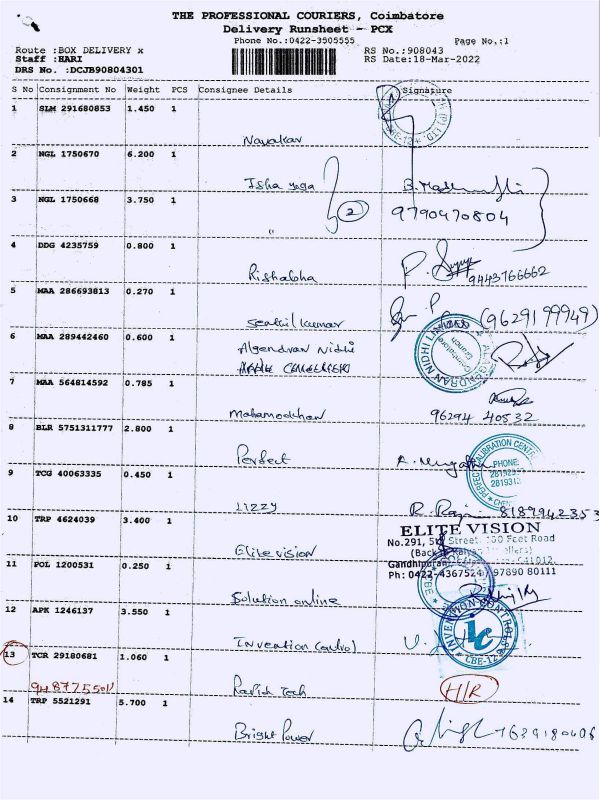 THE PROFESSIONAL COURIERS, Coimbatore
Delivery Runsheet - PCX
Phone No.:0422-3505555 Page No.:1
Route :BOX DELIVERY x RS No.:908043
Staff :HARI RS Date:18-Mar-2022
DRS No. :DCJB90804301
S No Consignment No Weight PCS Consignee Details Signature
1 SLM 291680853 1.450 1
Navakar
2 NGL 1750670 6.200 1
Isha yoga
3 NGL 1750668 3.750 1
2 9790470804
"
4 DDG 4235759 0.800 1
Rishabha 9443766662
5 MAA 286693813 0.270 1
Senthil kumar (9629199949)
6 MAA 289442460 0.600 1
Algendran Nidhi
7 MAA 564814592 0.785 1
96294 40532
8 BLR 5751311777 2.800 1
Perfect
PHONE:
9 TCG 40063335 0.450 1
Lizzy R. Raja 8189942353
10 TRP 4624039 3.400 1
ELITE VISION
Elite vision
11 POL 1200531 0.250 1
Ph: 0422-4367524 / 97890 80111
Solution online
12 APK 1246137 3.550 1
Invention Control
CBE-12
13 TCR 29180681 1.060 1
H/R
14 TRP 5521291 5.700 1
Bright Power